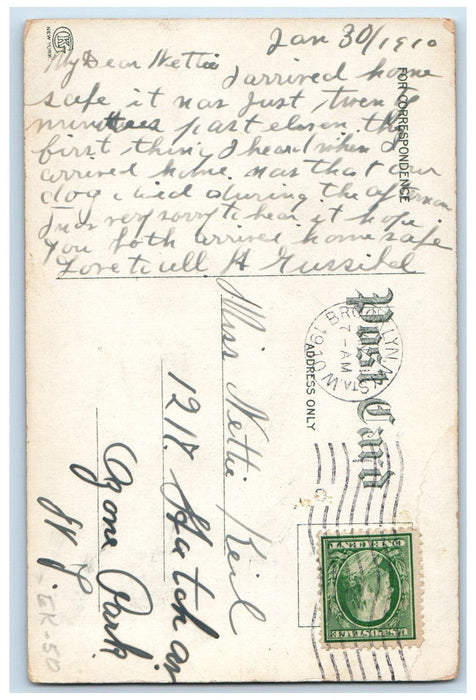 Jan 30/1910
My Dear Nettie
I arrived home
safe it was just twenty
minutes past eleven the
first thing I heard when I
arrived home was that our
dog died during the afternoon
I was very sorry to hear it hope
you both arrived home safe
Love to all H
Miss Nettie Keil
1217 Hatch av
Ozone Park
L I
ER-50
Post Card
FOR CORRESPONDENCE
ADDRESS ONLY
BROOKLYN, N.Y.
STA W
7-AM
1910
U.S. POSTAGE
ONE CENT
NEW YORK